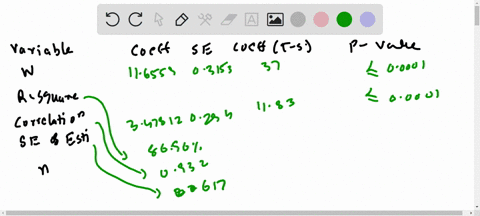 Variable Coeff SE Coeff (T-s) P-Value
W 11.6559 0.3153 37 ≤ 0.0001
R-square 11.83 ≤ 0.0001
Correlation 3.47812 0.294
SE of Esti 86.90%
n 0.932
617